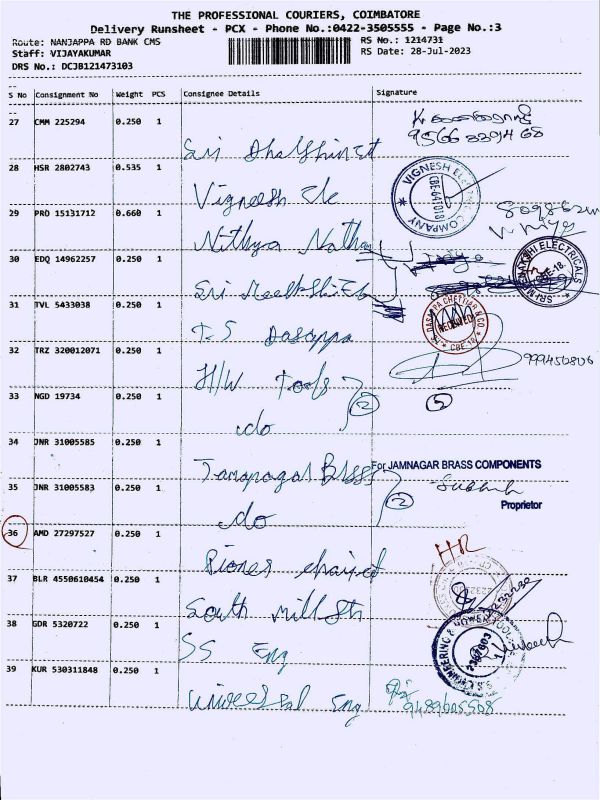 THE PROFESSIONAL COURIERS, COIMBATORE
Delivery Runsheet - PCX - Phone No.:0422-3505555 - Page No.:3
Route: NANJAPPA RD BANK CMS RS No.: 1214731
Staff: VIJAYAKUMAR RS Date: 28-Jul-2023
DRS No.: DCJB121473103
S No Consignment No Weight PCS Consignee Details Signature
27 CMM 225294 0.250 1
Sri
28 HSR 2802743 0.535 1
Vignesh Ele
VIGNESH ELE COMPANY
29 PRO 15131712 0.660 1
Nithya Nathan
30 EDQ 14962257 0.250 1
Sri Meekshi Ele
SRI MEENAKSHI ELECTRICALS
CBE-18
31 TVL 5433038 0.250 1
T.S Dasappa
DASAPPA CHETTIAR & CO
RECEIVED
CBE-18
32 TRZ 320012071 0.250 1
H/W Tools
33 NGD 19734 0.250 1
do
2
5
34 JNR 31005585 0.250 1
Jamnagar Brass
For JAMNAGAR BRASS COMPONENTS
35 JNR 31005583 0.250 1
do
2
Proprietor
36 AMD 27297527 0.250 1
HR
37 BLR 4550610454 0.250 1
South Mill Str
38 GDR 5320722 0.250 1
SS Eng
39 KUR 530311848 0.250 1
Universal Eng